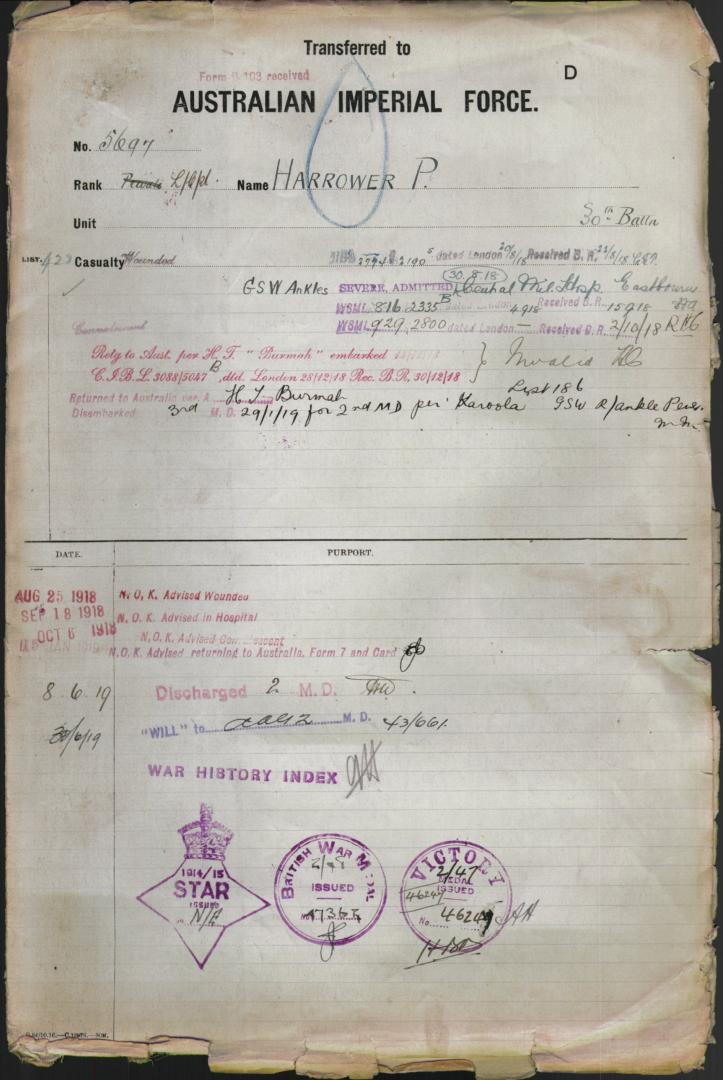 Transferred to
Form B 103 received
D
AUSTRALIAN IMPERIAL FORCE.
No. 5697
Rank Private L/Cpl. Name HARROWER P.
Unit 30th Battn
LIST. 423 Casualty Wounded dated London 20/8/18 Received B.R. 22/8/18
GSW Ankles SEVERE, ADMITTED 30.8.18 Central Mil Hosp Eastbourne
WSML 816 2335 B dated London 4 9 18 Received B.R. 15 9 18
WSML 929, 2800 dated London — Received B.R. 2/10/18
Convalescent
Retg to Aust. per H.T. "Burmah" embarked } Invalid
C.I.B.L. 3088/5047 B, dtd. London 28/12/18 Rec. B.R. 30/12/18
Returned to Australia per H.T. Burmah List 186
Disembarked 3rd M.D. 29/1/19 for 2nd MD per Karoola GSW R/ankle
DATE. PURPORT.
AUG 25 1918 N. O. K. Advised Wounded
SEP 18 1918 N. O. K. Advised in Hospital
OCT 6 1918 N.O.K. Advised Convalescent
JAN 1919 N.O.K. Advised returning to Australia. Form 7 and Card
8.6.19 Discharged 2 M. D.
30/6/19 "WILL" to 2 M. D. 43/661.
WAR HISTORY INDEX
1914/15
STAR
ISSUED
N/E
BRITISH WAR MEDAL
ISSUED
VICTORY
2/47
MEDAL
ISSUED
46249
No. 46249